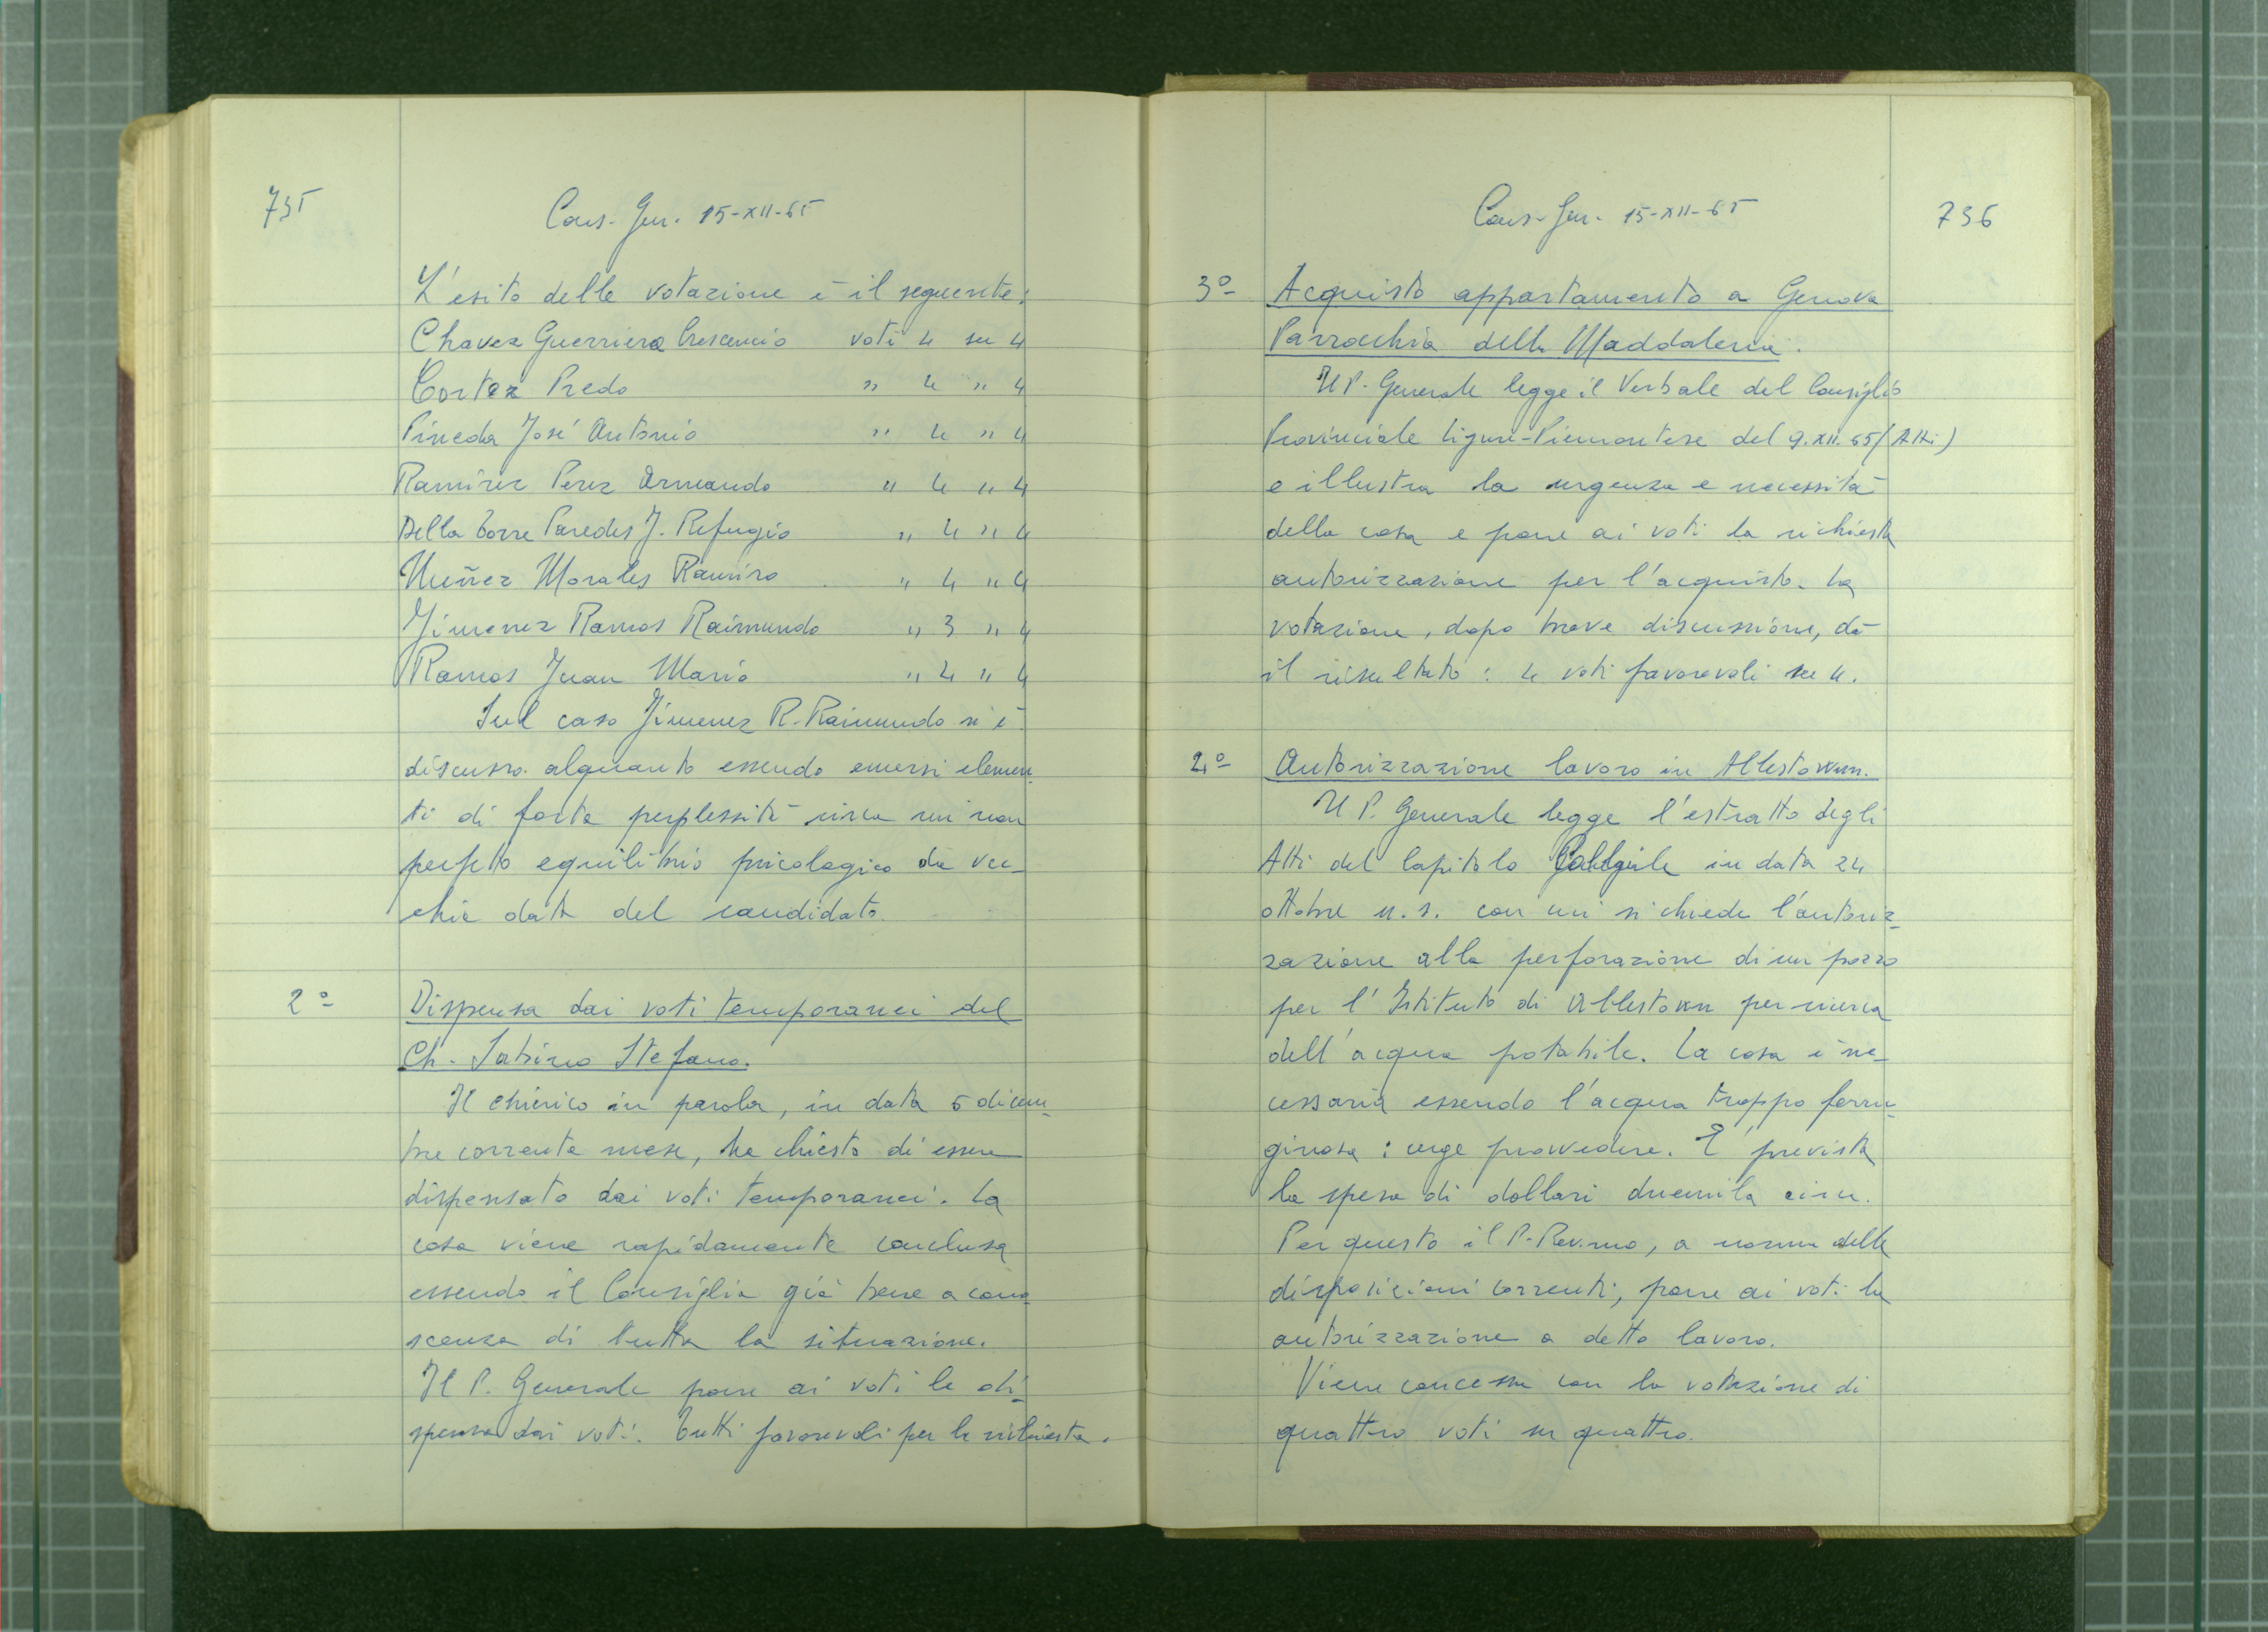 735
Cons. Gen. 15-XII-65
L'esito della votazione è il seguente:
Chavez Guerriero Crescencio voti 4 su 4
Cortez Predo " 4 " 4
Pineda José Antonio " 4 " 4
Ramirez Perez Armando " 4 " 4
Della Torre Paredes J. Refugio " 4 " 4
Nuñez Morales Ramiro " 4 " 4
Jimenez Ramos Raimundo " 3 " 4
Ramos Juan Mario " 4 " 4
Sul caso Jimenez R. Raimundo si è
discusso alquanto essendo emersi elemen-
ti di forte perplessità circa un non
perfetto equilibrio psicologico da vec-
chia data del candidato.
2° Dispensa dai voti temporanei del
Ch. Sabino Stefano.
Il chierico in parola, in data 5 dicem-
bre corrente mese, ha chiesto di essere
dispensato dai voti temporanei. La
cosa viene rapidamente conclusa
essendo il Consiglio già bene a cono-
scenza di tutta la situazione.
Il P. Generale pone ai voti la di-
spensa dai voti. Tutti favorevoli per la richiesta.
Cons. Gen. 15-XII-65
736
3° Acquisto appartamento a Genova
Parrocchia della Maddalena.
Il P. Generale legge il Verbale del Consiglio
Provinciale Ligure-Piemontese del 9.XII.65 (Atti)
e illustra la urgenza e necessità
della cosa e pone ai voti la richiesta
autorizzazione per l'acquisto. La
votazione, dopo breve discussione, dà
il risultato: 4 voti favorevoli su 4.
4° Autorizzazione lavoro in Allestown.
Il P. Generale legge l'estratto degli
Atti del Capitolo in data 24
ottobre u.s. con cui si chiede l'autoriz-
zazione alla perforazione di un pozzo
per l'Istituto di Allestown per ricerca
dell'acqua potabile. La cosa è ne-
cessaria essendo l'acqua troppo ferru-
ginosa: urge provvedere. È prevista
la spesa di dollari duemila circa.
Per questo il P. Rev.mo, a norma delle
disposizioni correnti, pone ai voti la
autorizzazione a detto lavoro.
Viene concessa con la votazione di
quattro voti su quattro.